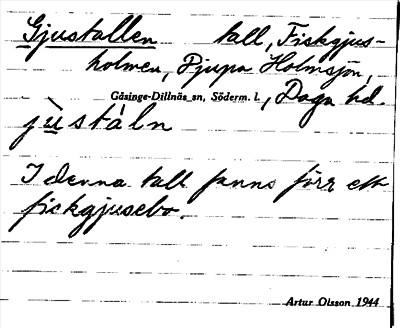 Gjustallen tall, Fiskgjus-
holmen, Djupa Holmsjön,
Gåsinge-Dillnäs sn, Söderm. l., Daga hd.
jùstàln
I denna tall fanns förr ett
fiskgjusebo.
Artur Olsson 1944